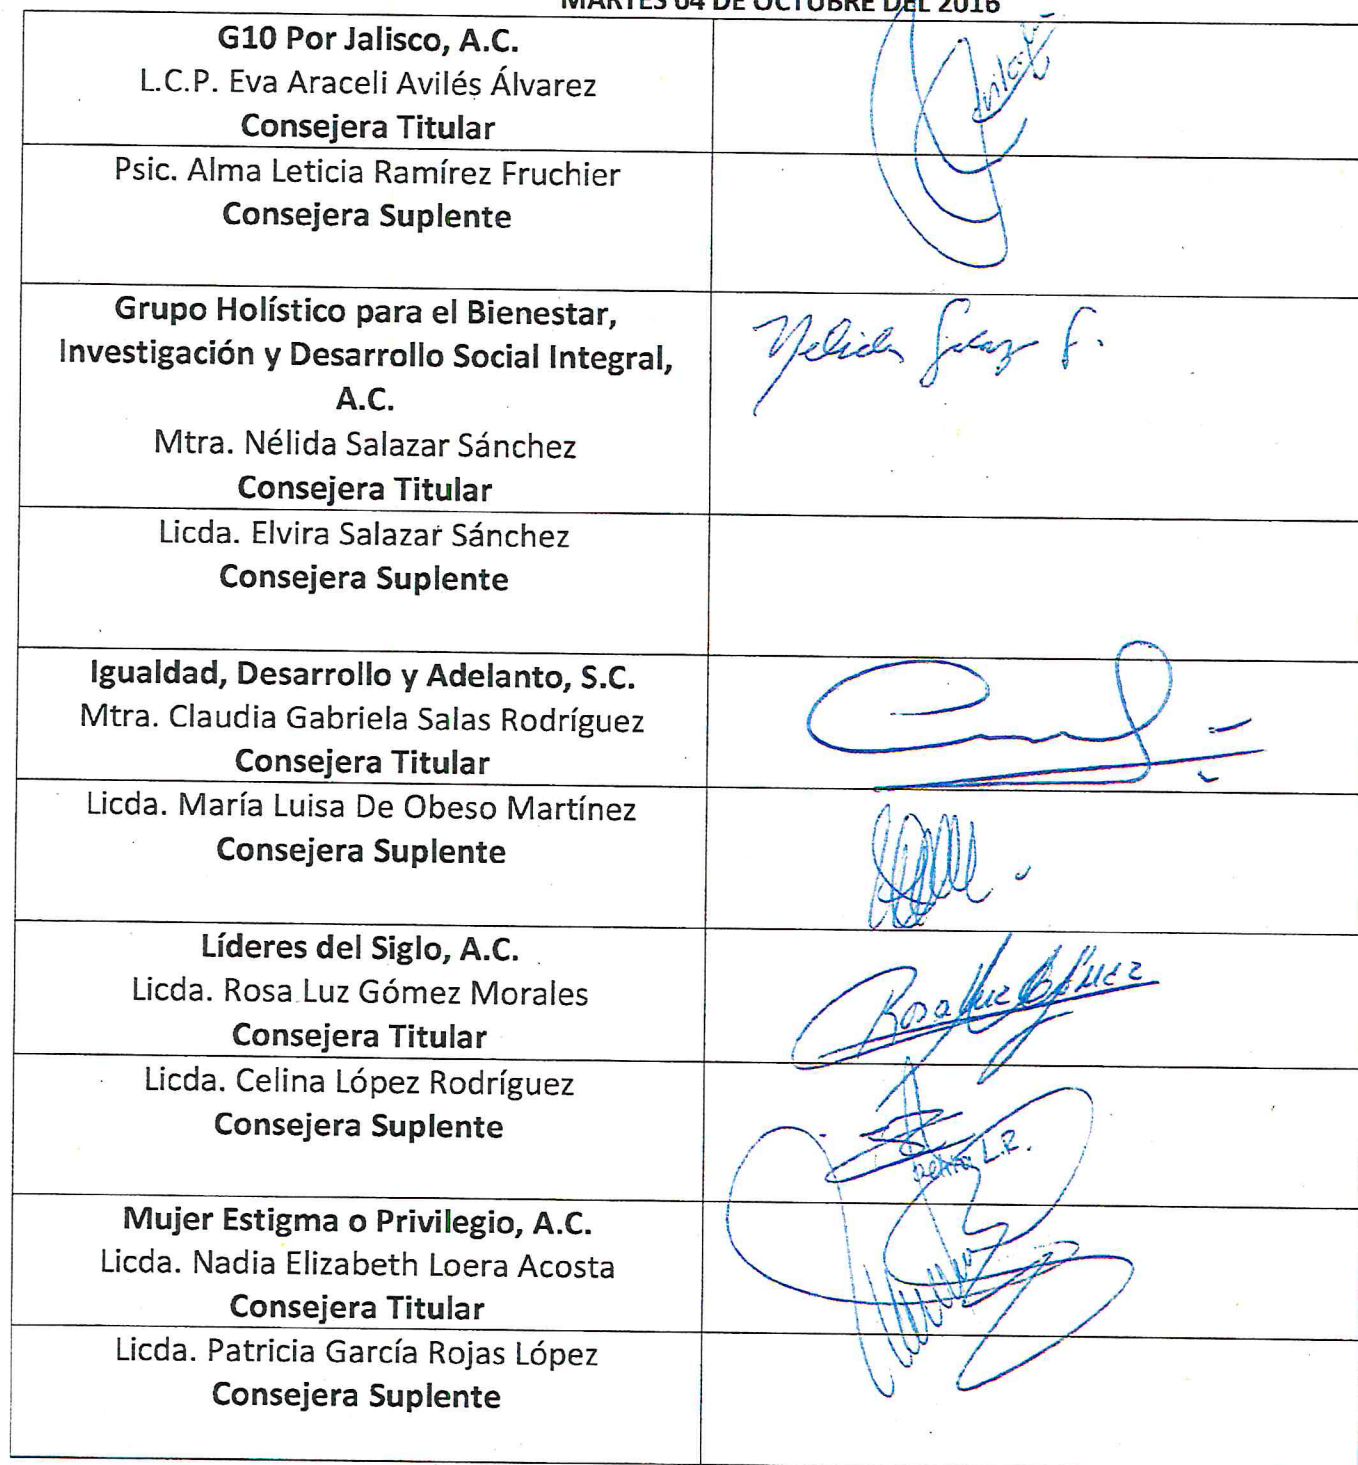 MARTES 04 DE OCTUBRE DEL 2016
G10 Por Jalisco, A.C.
L.C.P. Eva Araceli Avilés Álvarez
Consejera Titular
Psic. Alma Leticia Ramírez Fruchier
Consejera Suplente
Grupo Holístico para el Bienestar,
Investigación y Desarrollo Social Integral,
A.C.
Mtra. Nélida Salazar Sánchez
Consejera Titular
Nelida Salazar S.
Licda. Elvira Salazar Sánchez
Consejera Suplente
Igualdad, Desarrollo y Adelanto, S.C.
Mtra. Claudia Gabriela Salas Rodríguez
Consejera Titular
Licda. María Luisa De Obeso Martínez
Consejera Suplente
Líderes del Siglo, A.C.
Licda. Rosa Luz Gómez Morales
Consejera Titular
Rosa Luz Gómez
Licda. Celina López Rodríguez
Consejera Suplente
L.R.
Mujer Estigma o Privilegio, A.C.
Licda. Nadia Elizabeth Loera Acosta
Consejera Titular
Licda. Patricia García Rojas López
Consejera Suplente